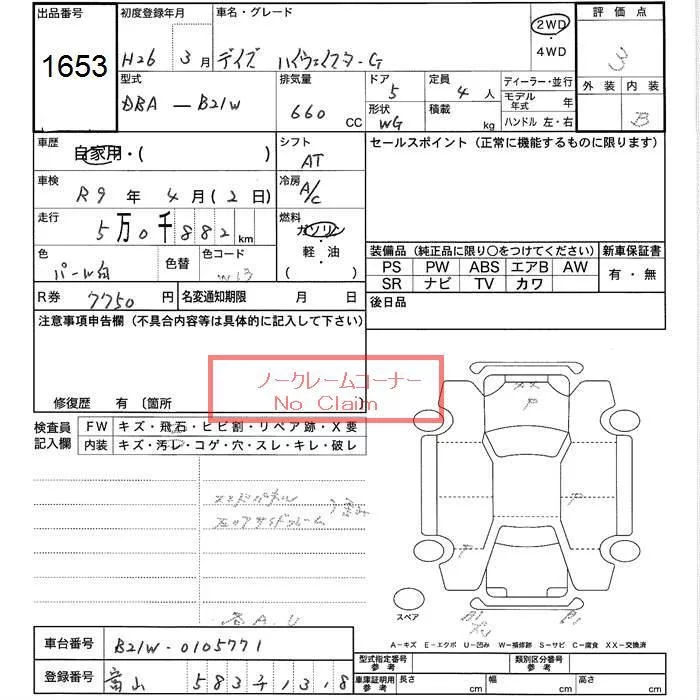 出品番号 初度登録年月 車名・グレード 評価点
1653 H26年 3月 デイズ ハイウェイスターG 2WD・4WD 3
型式 排気量 ドア 定員 ディーラー・並行 外装 内装
DBA-B21W 660CC 5 4人 モデル年式 年 B
形状 WG 積載 kg ハンドル 左・右
車歴 自家用・( ) シフト AT セールスポイント(正常に機能するものに限ります)
車検 R9年 4月(2日) 冷房 A/C
走行 5万0千882km 燃料 ガソリン・軽・油( )
色 パール白 色替 色コード 装備品(純正品に限り〇をつけてください) 新車保証書
PS PW ABS エアB AW 有・無
SR ナビ TV カワ
R券 7750円 名変通知期限 月 日 後日品
注意事項申告欄(不具合内容等は具体的に記入して下さい)
ノークレームコーナー
No Claim
修復歴 有〔箇所 〕
検査員記入欄 FW キズ・飛石・ヒビ割・リペア跡・X要
内装 キズ・汚レ・コゲ・穴・スレ・キレ・破レ
XX
P
エンドパネル
左リアサイドフレーム
P
スペア
A-キズ E-エクボ U-凹み W-補修跡 S-サビ C-腐食 XX-交換済
車台番号 B21W-0105771
型式指定番号 参考 類別区分番号 参考
登録番号 富山 583
車庫証明用参考 長さ cm 幅 cm 高さ cm